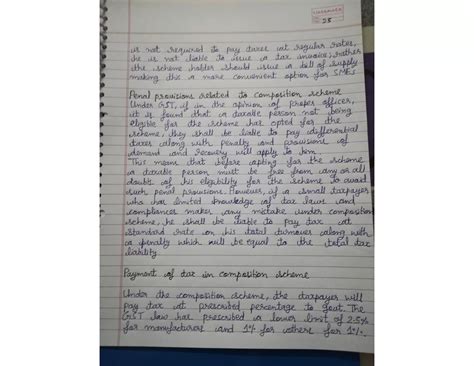 CLASSMATE
25
is not required to pay taxes at regular rates,
he is not liable to issue a tax invoice, rather
the scheme holder should issue a bill of supply
making this a more convenient option for SMEs
Penal provisions related to composition scheme
Under GST, if in the opinion of proper officer,
it is found that a taxable person not being
eligible for the scheme has opted for the
scheme, they shall be liable to pay differential
taxes along with penalty and provisions of
demand and recovery will apply to him.
This means that before opting for the scheme
a taxable person must be free from any or all
doubts of his eligibility for the scheme to avoid
such penal provisions. However, if a small taxpayer
who has limited knowledge of tax laws and
compliances makes any mistake under composition
scheme, he shall be liable to pay tax at
standard rate on his total turnover along with
a penalty which will be equal to the total tax
liability.
Payment of tax in composition scheme
Under the composition scheme, the taxpayer will
pay tax at prescribed percentage to govt. The
GST law has prescribed a lower limit of 2.5%
for manufacturers and 1% for others for 1%.